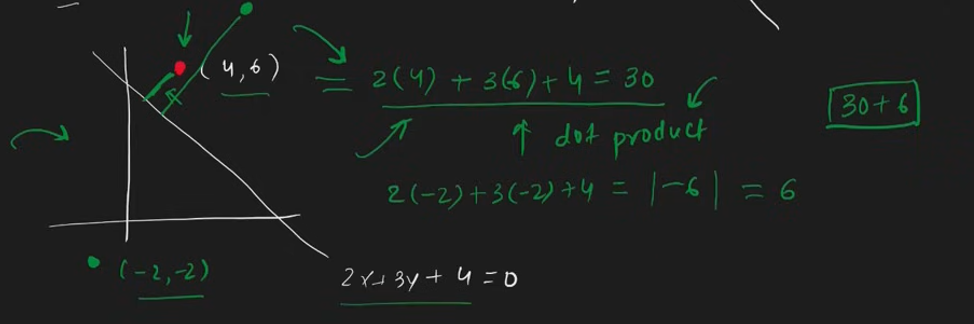 (4,6)
= 2(4) + 3(6) + 4 = 30
30 + 6
dot product
2(-2) + 3(-2) + 4 = |-6| = 6
(-2,-2)
2x + 3y + 4 = 0